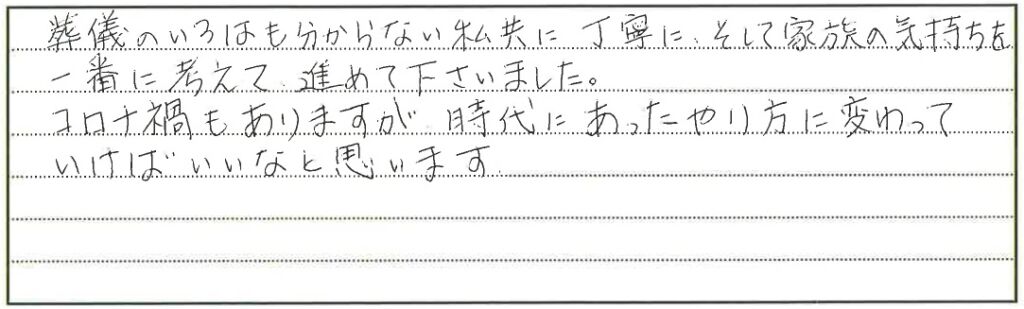 葬儀のいろはも分からない私共に丁寧に、そして家族の気持ちを
一番に考えて、進めて下さいました。
コロナ禍もありますが、時代にあったやり方に変わって
いけばいいなと思います。